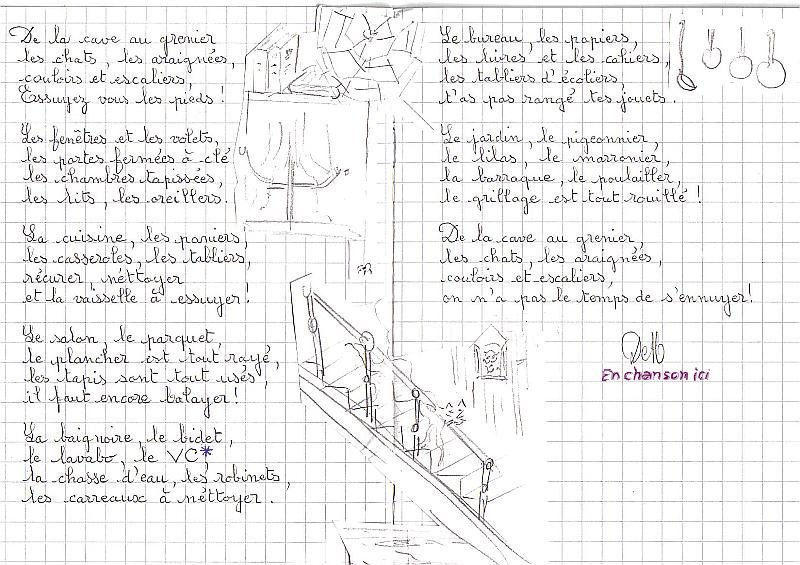 De la cave au grenier
les chats, les araignées,
couloirs et escaliers,
Essuyez vous les pieds !
Les fenêtres et les volets,
les portes fermées à clé
les chambres tapissées,
les lits, les oreillers.
La cuisine, les paniers,
les casseroles, les tabliers,
récurer, néttoyer
et la vaisselle à essuyer !
Le salon, le parquet,
le plancher est tout rayé,
les tapis sont tout usés,
il faut encore balayer !
La baignoire, le bidet,
le lavabo, le VC*
la chasse d'eau, les robinets,
les carreaux à néttoyer.
Le bureau, les papiers,
les livres et les cahiers,
les tabliers d'écoliers,
t'as pas rangé tes jouets.
Le jardin, le pigeonnier,
le lilas, le marronier,
la barraque, le poulailler,
le grillage est tout rouillé !
De la cave au grenier,
les chats, les araignées,
couloirs et escaliers,
on n'a pas le temps de s'ennuyer !
En chanson ici